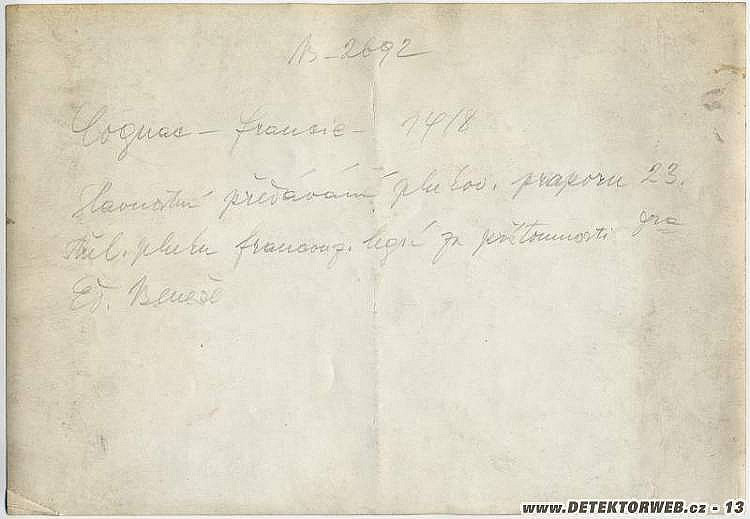 B-2692
Cognac - Francie - 1918
Slavnostní předávání plukov. praporu 23.
Střel. pluku francouz. legií za přítomnosti Dra
Ed. Beneše
www.DETEKTORWEB.cz - 13